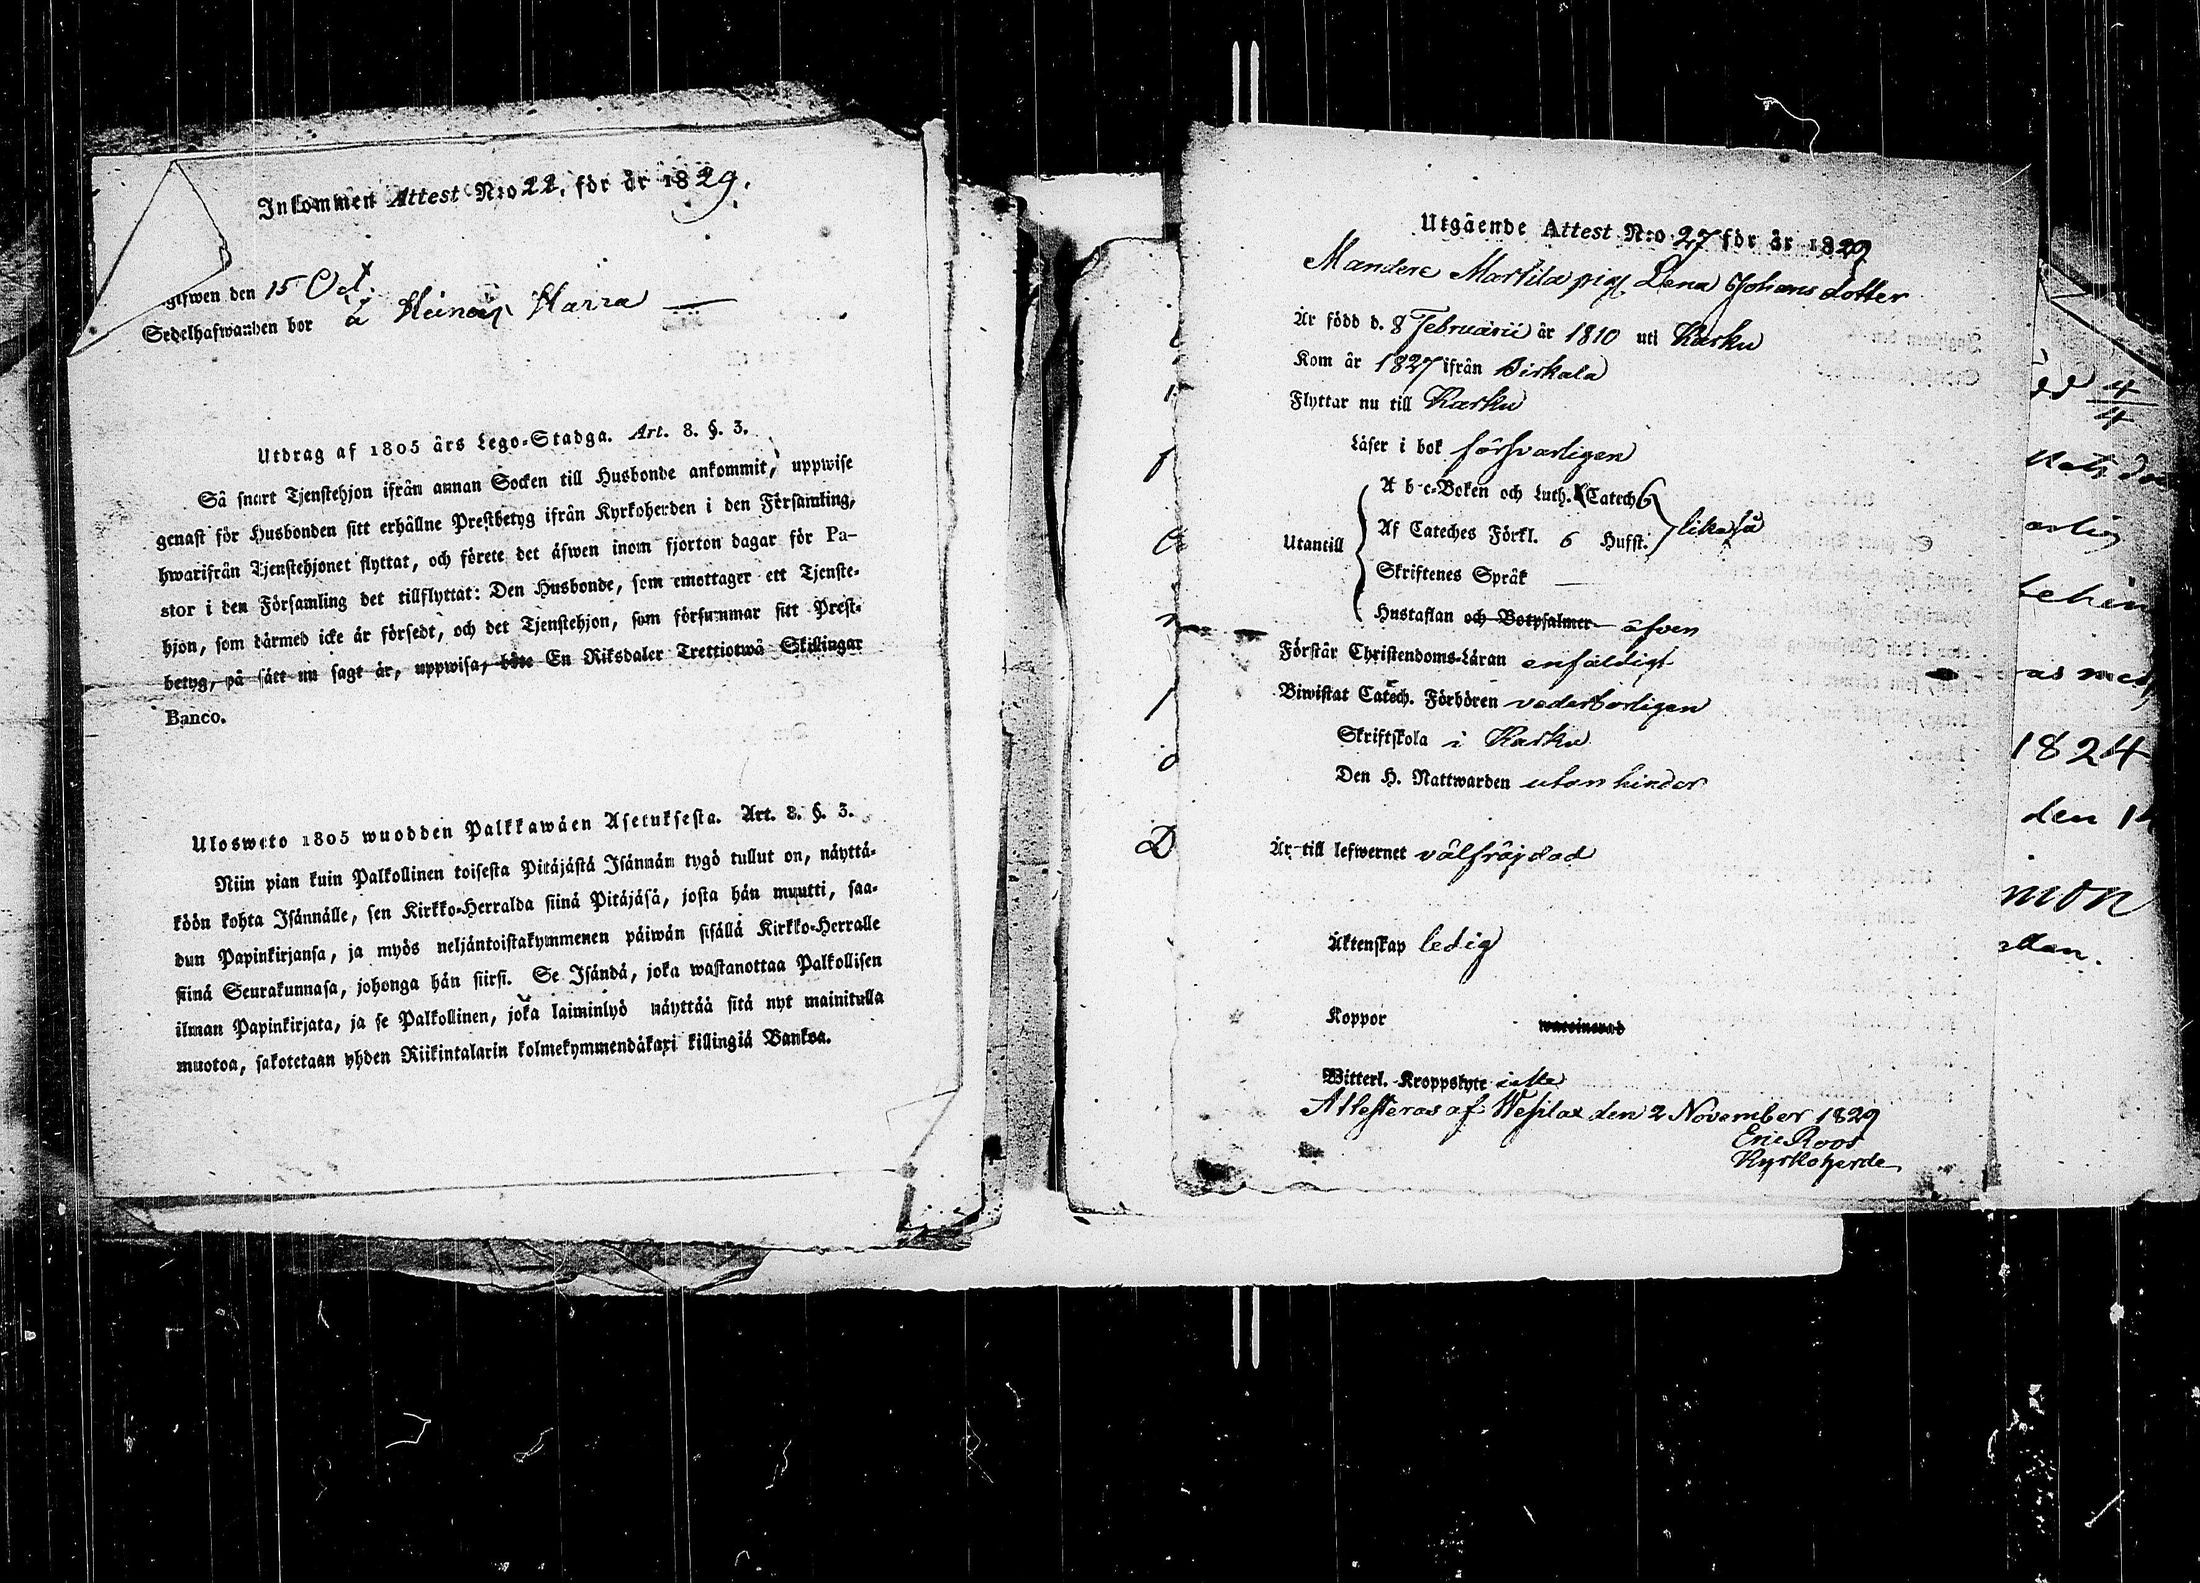 Inkommen Attest N:o 22. för år 1829.
gifwen den 15 Oct.
Sedelhafwanden bor å Heinois Harra
Utdrag af 1805 års Lego-Stadga. Art. 8. §. 3.
Så snart Tjenstehjon ifrån annan Socken till Husbonde ankommit, uppwise
genast för Husbonden sitt erhållne Prestbetyg ifrån Kyrkoherden i den Församling,
hwarifrån Tjenstehjonet flyttat, och förete det äfwen inom fjorton dagar för Pa-
stor i den Församling det tillflyttat: Den Husbonde, som emottager ett Tjenste-
hjon, som därmed icke är försedt, och det Tjenstehjon, som försummar sitt Prest-
betyg, på sätt nu sagt är, uppwisa, böte En Riksdaler Trettiotwå Skillingar
Banco.
Ulosweto 1805 wuodden Palkkawäen Asetuksesta. Art. 8. §. 3.
Niin pian kuin Palkollinen toisesta Pitäjästä Isännän tygö tullut on, näyttä-
köön kohta Isännälle, sen Kirkko-Herralda siinä Pitäjäsä, josta hän muutti, saa-
dun Papinkirjansa, ja myös neljäntoistakymmenen päiwän sisällä Kirkko-Herralle
siinä Seurakunnasa, johonga hän siirsi. Se Isändä, joka wastanottaa Palkollisen
ilman Papinkirjata, ja se Palkollinen, joka laiminlyö näyttää sitä nyt mainitulla
muotoa, sakotetaan yhden Riikintalarin kolmekymmendäkaxi killingiä Bankoa.
Utgående Attest N:o 27 för år 1829
Mandere Marttila pig. Lena Johansdotter
Är född d. 8 Februarii år 1810 uti Karku
Kom år 1827 ifrån Birkala
Flyttar nu till Karku
Läser i bok försvarligen
A b c-Boken och Luth. Catech 6
Utantill Af Cateches Förkl. 6 Hufst. lika så
Skriftenes Språk
Hustaflan och Botpsalmer äfven
Förstår Christendoms-Läran enfäldigt
Biwistat Catech. Förhören vederbörligen
Skriftskola i Karku
Den H. Nattwarden utan hinder
Är till lefwernet välfräjdad
Äktenskap ledig
Koppor waccinerad
Witterl. Kroppslyte intte
Attesteras af Wesilax den 2 November 1829
Eric Roos
Kyrkoherde
4
4
arlig
1824
den 1
mon